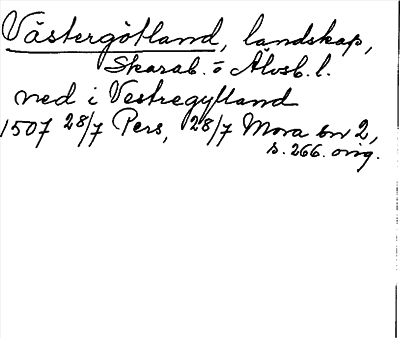 Västergötland, landskap,
Skarab. o Älvsb. l.
ned i Vestregytland
1507 28/7 Pers, 28/7 Mora bn 2,
s. 266. orig.